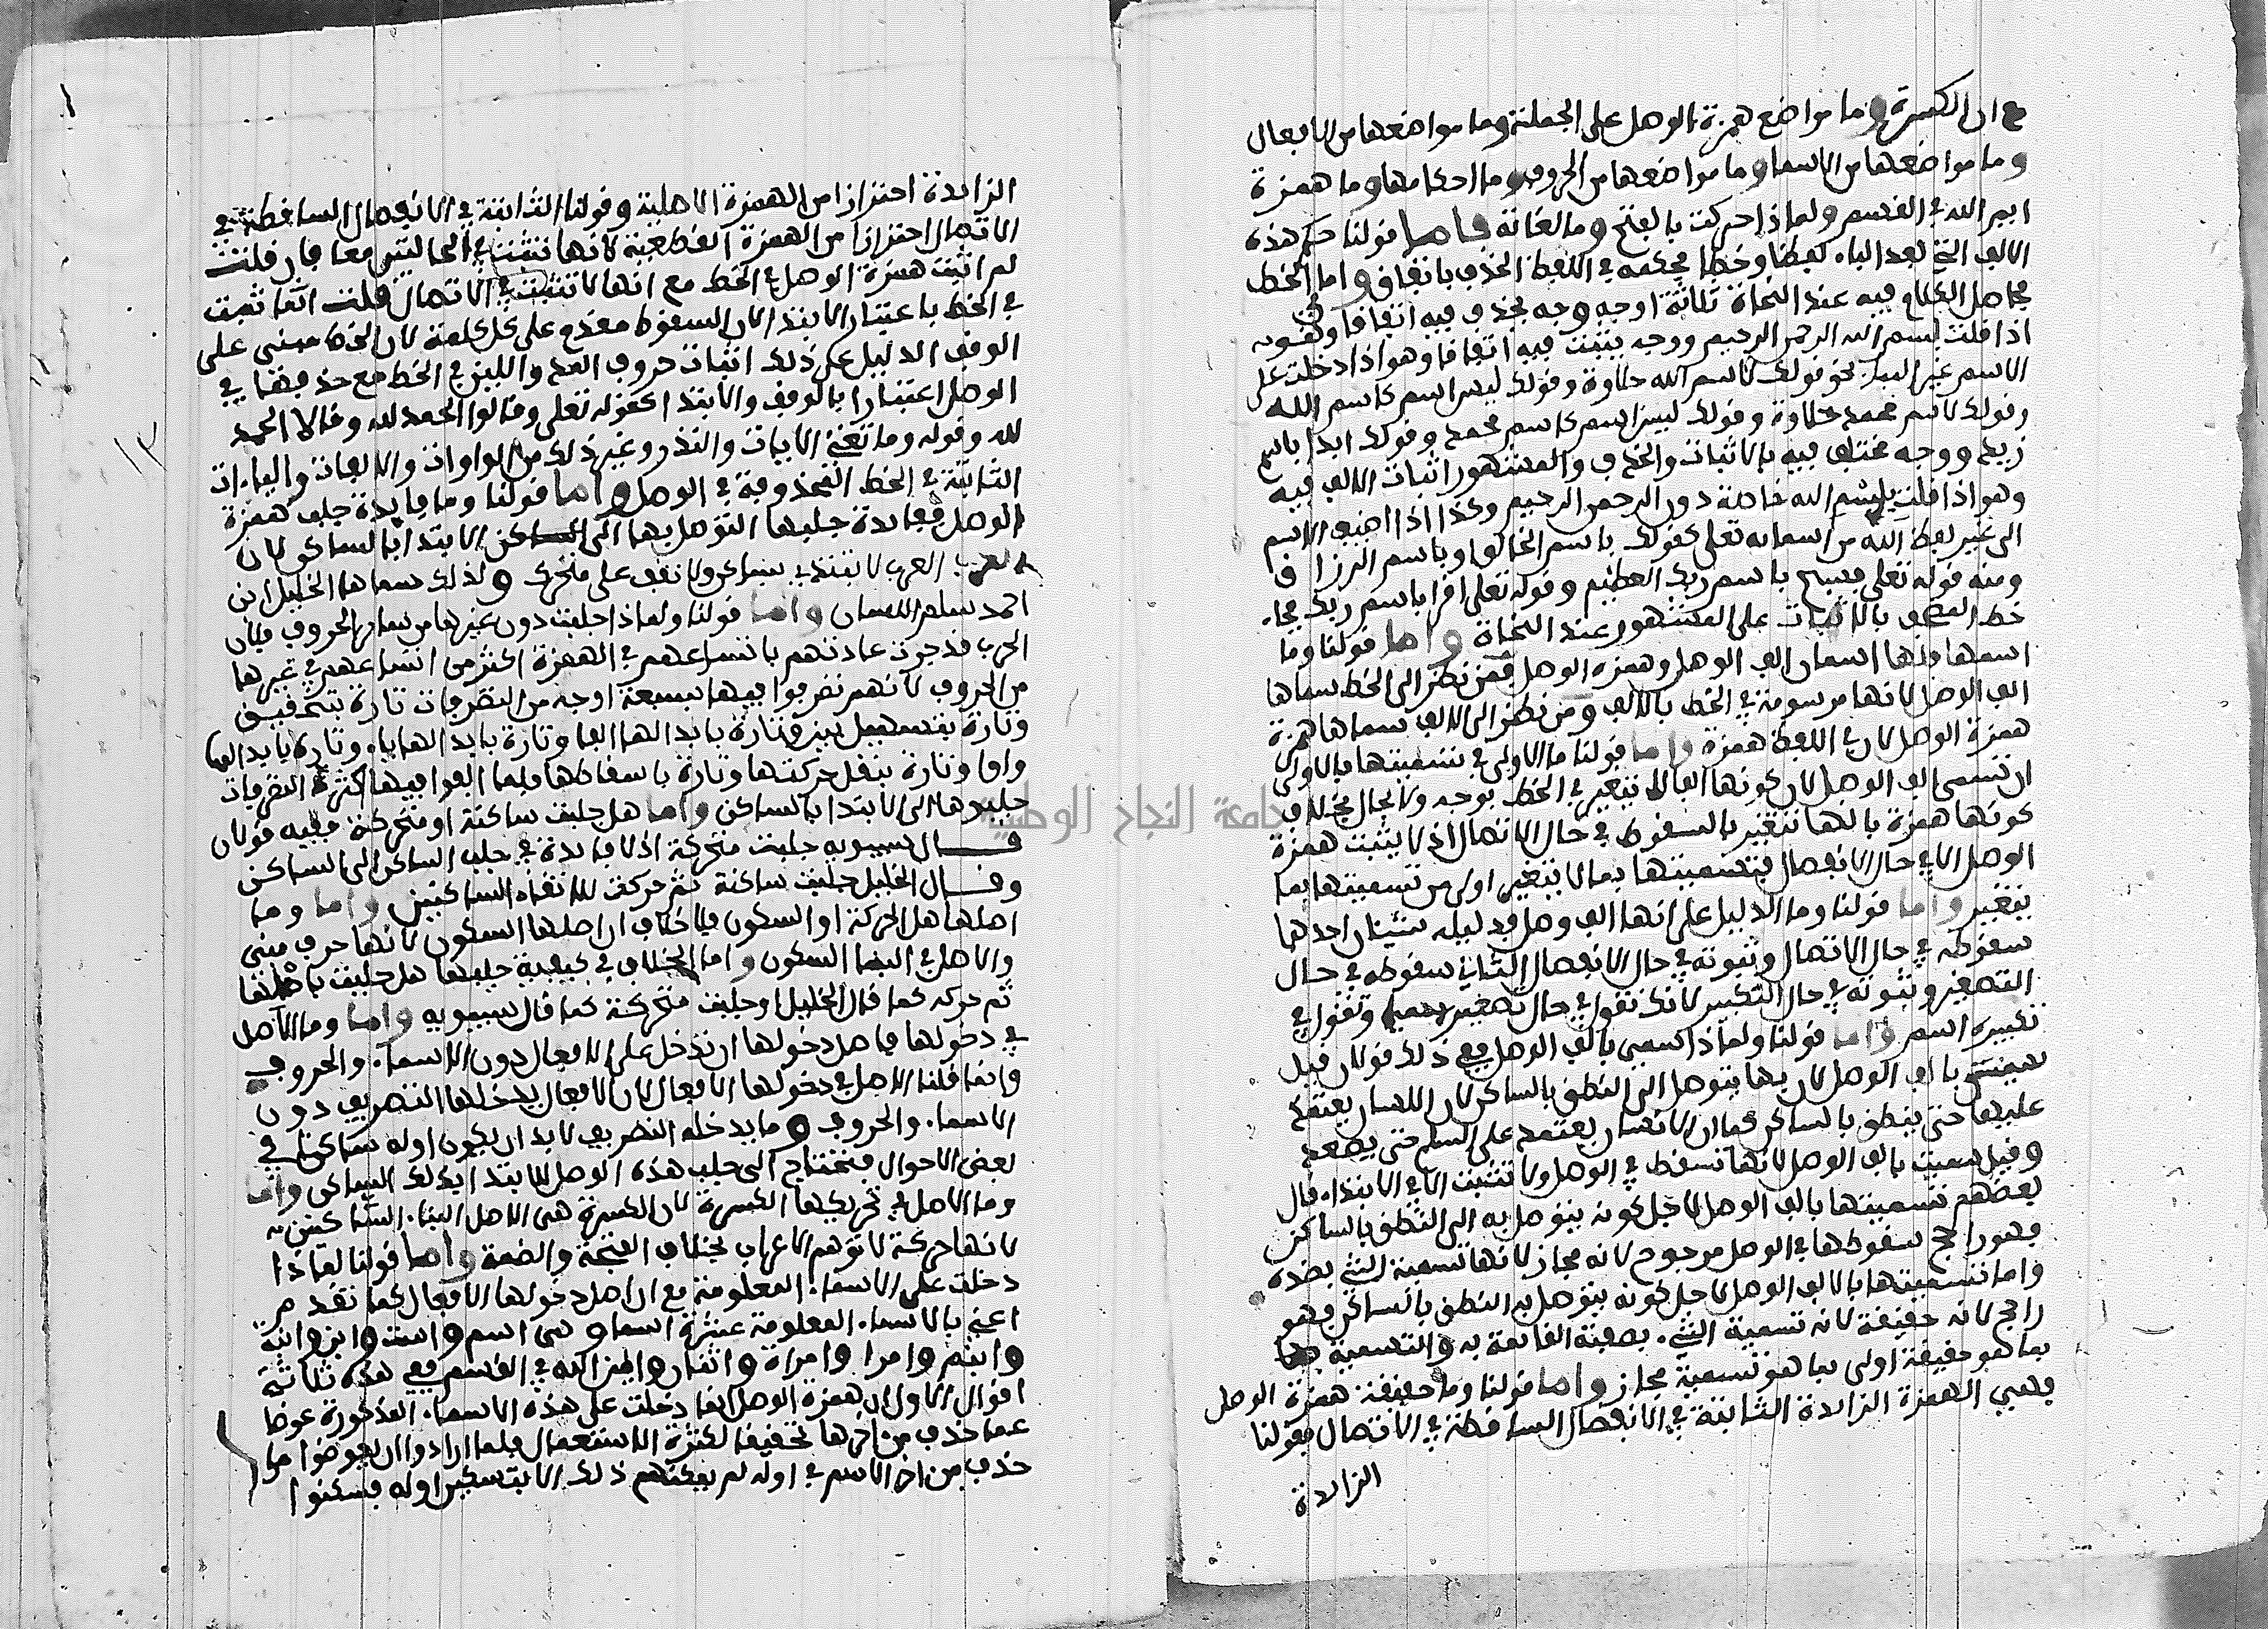 مع ان الكسرة وما مواضع همزة الوصل على الجملة وما مواضعها من الافعال
وما مواضعها من الاسما وما مواضعها من الحروف وما احكامها وما همزة
ايم الله في القسم ولماذا حركت بالفتح وما لغاته فاما قولنا حكم هذه
الالف التي بعد الباء لفظا وخطا فحكمه في اللفظ الحذف باتفاق واما الخط
فحاصل الكلام فيه عند النحاة ثلاثة اوجه وجه يحذف فيه اتفاقا وهو
اذا قلت بسم الله الرحمن الرحيم ووجه يثبت فيه اتفاقا وهو اذا دخلت على
الاسم غير الباء نحو قولك لاسم الله حلاوة وقولك ليس اسم كاسم الله
وقولك لاسم محمد حلاوة وقولك ليس اسم كاسم محمد وقولك ابدا باسم
زيد ووجه مختلف فيه بالاثبات والحذف والمشهور اثبات الالف فيه
وهو اذا قلت بسم الله خاصة دون الرحمن الرحيم وكذا اذا اضيف الاسم
الى غير لفظ الله من اسمايه تعلى كقولك باسم الخالق او باسم الرزاق
ومنه قوله تعلى فسبح باسم ربك العظيم وقوله تعلى اقرا باسم ربك فجاء
خط المصحف بالاثبات على المشهور عند النحاة واما قولنا وما
اسمها فلها اسمان الف الوصل وهمزة الوصل فمن نظر الى الخط سماها
الف الوصل لانها مرسومة في الخط بالالف ومن نظر الى الالف سماها همزة
همزة الوصل لان في اللفظ همزة واما قولنا ما الاولى في تسميتها فالاولى
ان تسمى الف الوصل لان كونها الفا لا يتغير في الخط بوجه ولا بحال بخلاف
كونها همزة فانها تتغير بالسقوط في حال الاتصال اذ لا يثبت همزة
الوصل الا في حال الانفصال فتسميتها بما لا يتغير اولى من تسميتها بما
يتغير واما قولنا وما الدليل على انها الف وصل فدليله شيئان احدهما
سقوطه في حال الاتصال وثبوته في حال الانفصال الثاني سقوطه في حال
التصغير وثبوته في حال التكبير لانك تقول في حال تصغيره سمي وتقول في
تكبيره اسم واما قولنا ولماذا سمي بالف الوصل ففي ذلك قولان قيل
سميت بالف الوصل لان بها يتوصل الى النطق بالساكن لان اللسان يعتمد
عليها حتى ينطق بالساكن كما ان الانسان يعتمد على السلم حتى يصعد
وقيل سميت بالف الوصل لانها تسقط في الوصل ولا تثبت الا في الابتداء قال
بعضهم تسميتها بالف الوصل لاجل كونه يتوصل به الى النطق بالساكن
فهو راجح سقوطها في الوصل مرجوح لانه مجاز لانها تسمية الشي بضده
واما تسميتها بالالف الوصل لاجل كونه يتوصل به النطق بالساكن فهو
راجح لانه حقيقة لانه تسمية الشيء بصفته القايمة به والتسمية
بما هو حقيقة اولى بما هو تسمية مجاز واما قولنا وما حقيقة همزة الوصل
فهي الهمزة الزايدة الثابتة في الانفصال الساقطة في الاتصال فقولنا
الزايدة
الزايدة احترازا من الهمزة الاصلية وقولنا الثابتة في الانفصال الساقطة في
الاتصال احترازا من الهمزة القطعية لانها تثبت في الحالتين معا فان قلت
لم اثبت همزة الوصل في الخط مع انها لا تثبت في الاتصال قلت انما ثبت
في الخط باعتبار الابتدا لان السقوط مقدم على كل كلمة لان الخط مبني على
الوقف الدليل على ذلك اثبات حروف المد واللين في الخط مع حذفها في
الوصل اعتبارا بالوقف والابتدا كقوله تعلى وقالوا الحمد لله وقالا الحمد
لله وقوله وما تغني الايات والنذر وغير ذلك من الواوات والالفات والياءات
الثابتة في الخط المحذوفة في الوصل واما قولنا وما فايدة جلب همزة
الوصل ففايدة جلبها التوصل بها الى الابتدا بالساكن لان
العرب لا تبتدي بساكن ولا تقف على متحرك ولذلك سماها الخليل ابن
احمد سلم اللسان واما قولنا ولماذا جلبت دون غيرها من ساير الحروف فلان
العرب قد جرت عادتهم باتساعهم في الهمزة اكثر من اتساعهم في غيرها
من الحروف لانهم تصرفوا فيها بسبعة اوجه من التصرفات تارة بتحقيق
وتارة بتسهيل بين بين وتارة بابدالها الفا وتارة بابدالها ياء وتارة بابدالها
واوا وتارة بنقل حركتها وتارة باسقاطها فلما الفوا فيها كثرة التصرفات
جلبوها الى الابتدا بالساكن واما هل جلبت ساكنة او متحركة ففيه قولان
قال سيبويه جلبت متحركة اذ لا فايدة في جلب الساكن الى الساكن
وقال الخليل جلبت ساكنة ثم حركت لالتقاء الساكنين واما وما
اصلها هل الحركة او السكون فلا خلاف ان اصلها السكون لانها حرف مبني
والاصل في البنا السكون واما الخلاف في كيفية جلبها هل جلبت باصلها
ثم حركه كما قال الخليل او جلبت متحركة كما قال سيبويه واما وما الاصل
في دخولها فاصل دخولها ان تدخل على الافعال دون الاسماء والحروف
وانما قلنا الاصل في دخولها الافعال لان الافعال يدخلها التصريف دون
الاسماء والحروف وما يدخله التصريف لابد ان يكون اوله ساكنا في
بعض الاحوال فتحتاج الى جلب هذه الوصل للابتدا بذلك الساكن واما
وما الاصل في تحريكها الكسرة لان الكسرة هي الاصل التقاء الساكنين
لانها حركة لا توهم الاعراب بخلاف الفتحة والضمة واما قولنا لماذا
دخلت على الاسماء المعلومة مع ان اصل دخولها الافعال كما تقدم
اعني بالاسماء المعلومة عشرة اسما وهي اسم واست وابن وابنة
وابنم وامرا وامراة واثنان وايمن الله في القسم ففي هذه ثلاثة
اقوال الاول ان همزة الوصل انما دخلت على هذه الاسماء المذكورة عوضا
عما حذف من اخرها تخفيفا لكثرة الاستعمال فلما ارادوا ان يعوضوا ما
حذف من اخر الاسم في اوله لم يمكنهم ذلك الا بتسكين اوله فسكنوا
١٣
جامعة النجاح الوطنية